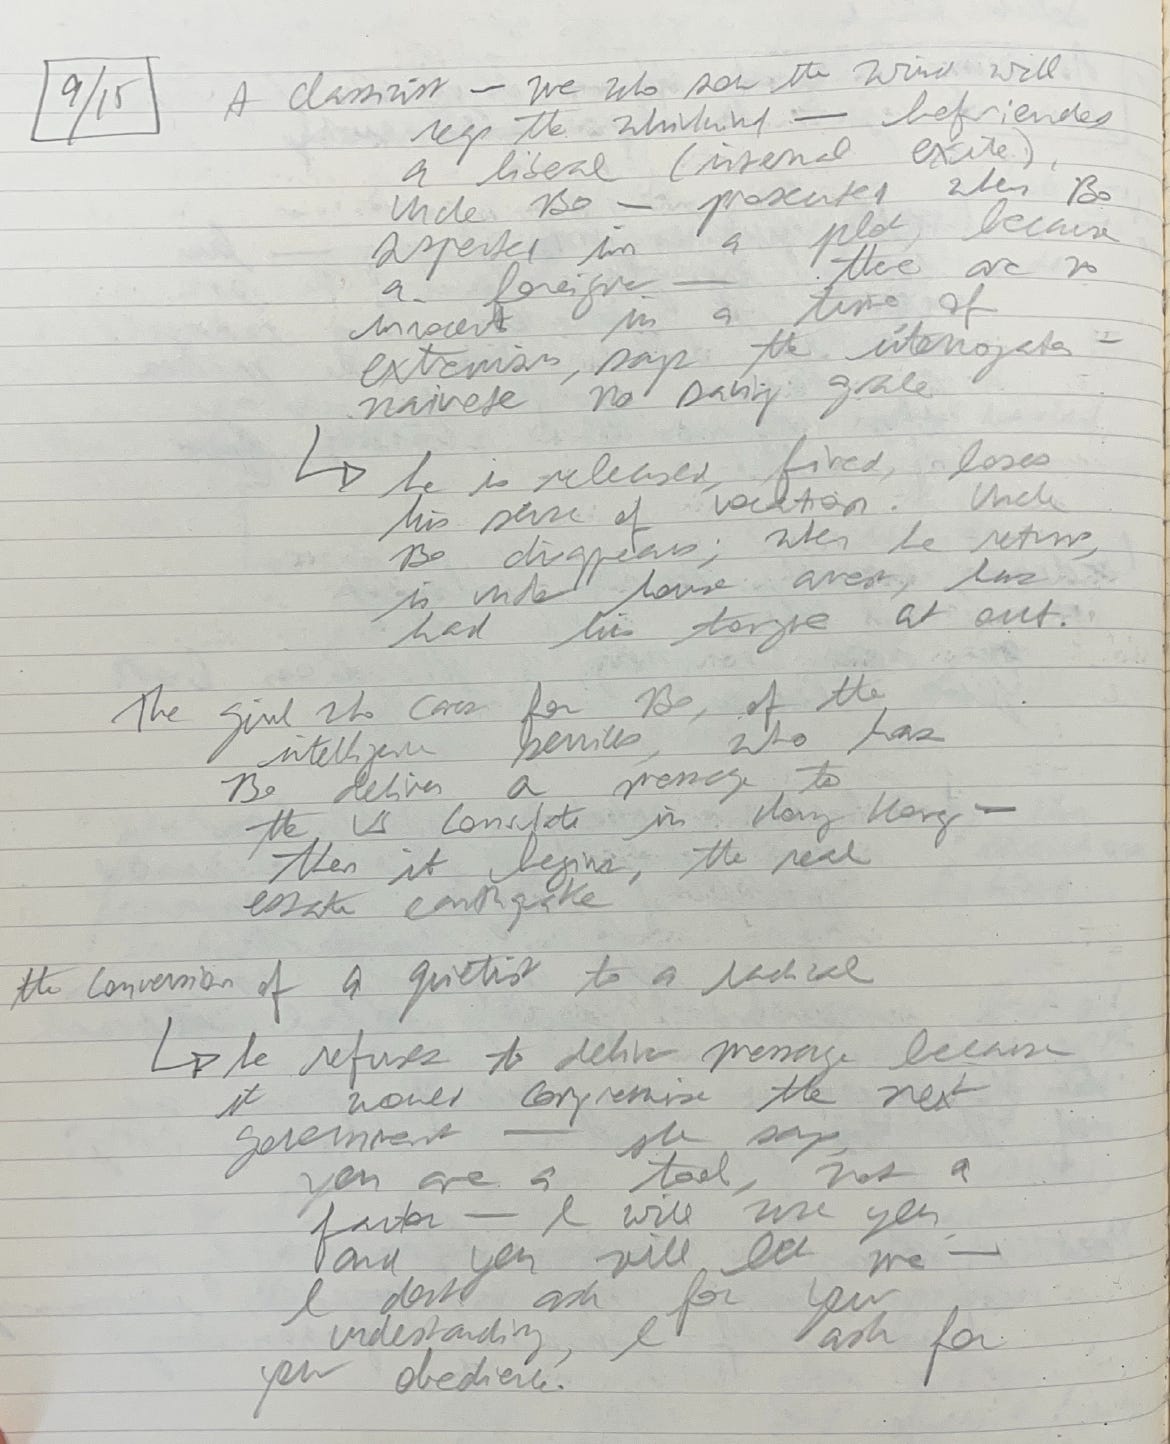 9/15
A classicist — we who sow the wind will
reap the whirlwind — befriends
a liberal (internal exile),
Uncle Bo — prosecuted when Bo
suspected in a plot, because
a foreigner — there are no
innocent in a time of
extremism, says the interrogator –
naivete no saving grace
he is released, fired, loses
his sense of vocation. Uncle
Bo disappears; when he returns,
is under house arrest, has
had his tongue cut out.
The girl who cares for Bo, of the
intelligence services, who has
Bo deliver a message to
the US Consulate in Hong Kong —
then it begins, the real
estate earthquake
the conversion of a quietist to a radical
he refuses to deliver message because
it would compromise the next
government — she says,
you are a tool, not a
factor — I will use you
and you will let me —
I don't ask for your
understanding, I ask for
your obedience.